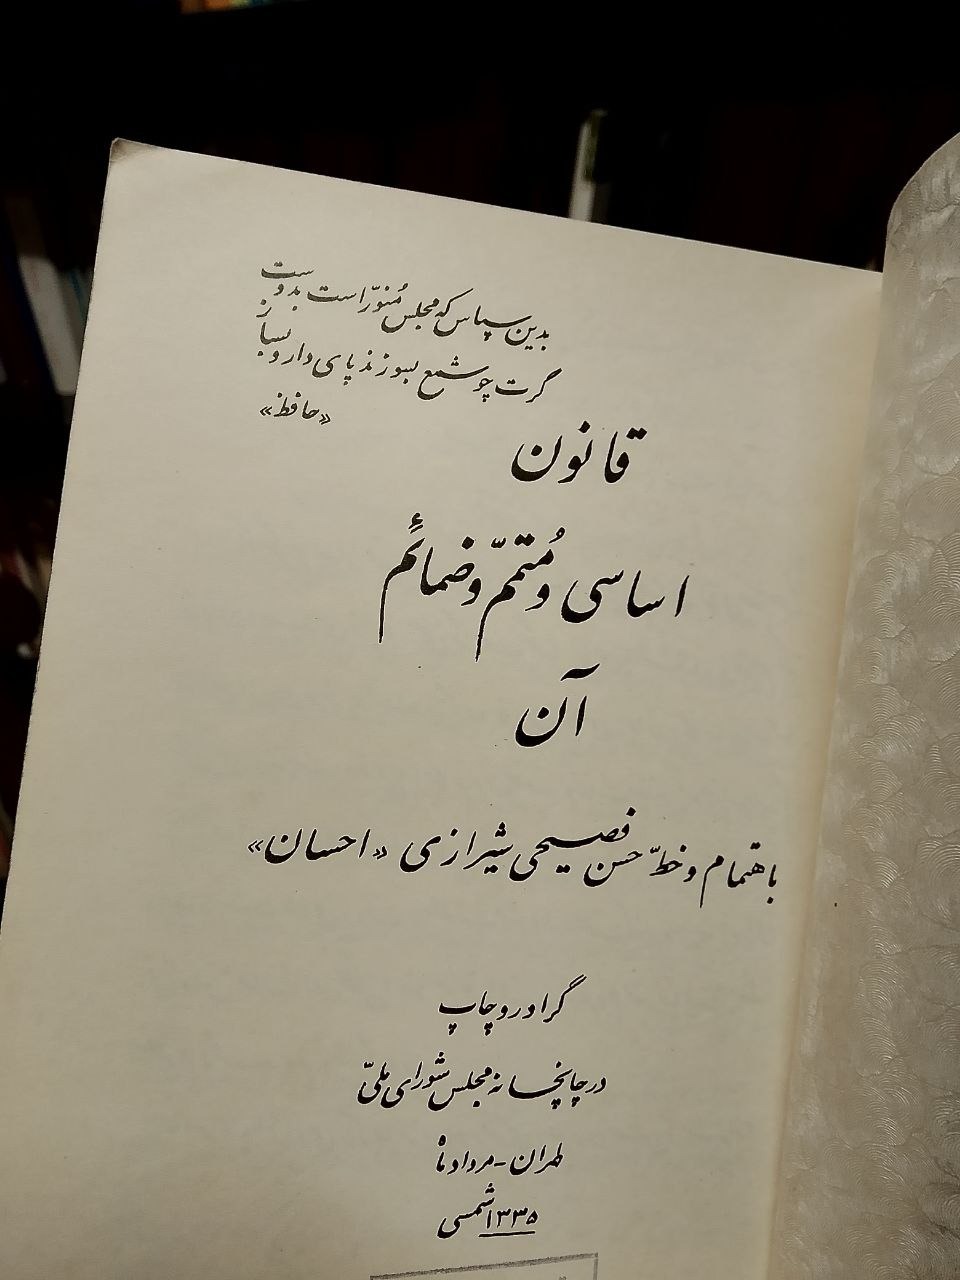 بدین سپاس که مجلس مُنوّر است بدوست
گرت چو شمع بسوزند پای دار و بساز
«حافظ»
قانون
اساسی و مُتمّم و ضمائم
آن
باهتمام و خطّ حسن فصیحی شیرازی «احسان»
گراور و چاپ
در چاپخانه مجلس شورای ملّی
طهران - مرداد ماه
۱۳۳۵ شمسی